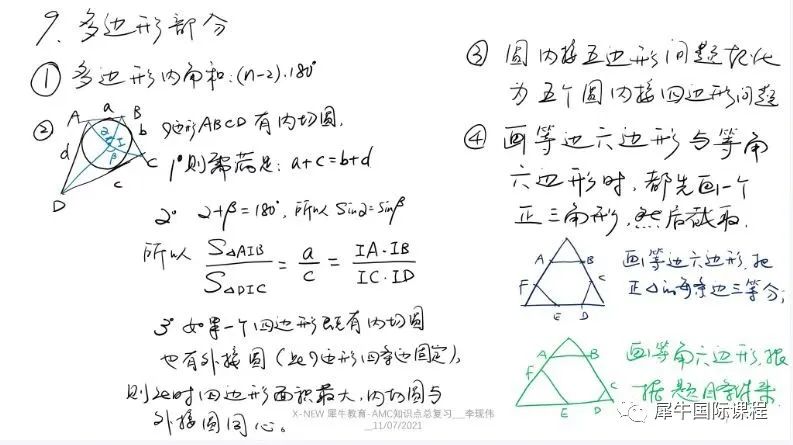 9. 多边形部分
① 多边形内角和:(n-2)·180°
② A a B b C c D d α I β
四边形ABCD有内切圆.
1° 则需满足: a+c=b+d
2° α+β=180°, 所以 sinα=sinβ
所以 S△AIB / S△DIC = a/c = IA·IB / IC·ID
3° 如果一个四边形既有内切圆
也有外接圆(此四边形四条边固定),
则此时四边形面积最大,内切圆与
外接圆同心.
③ 圆内接五边形问题转化
为五个圆内接四边形问题
④ 画等边六边形与等角
六边形时,都先画一个
正三角形,然后截取.
A B C D E F
画等边六边形,把
正△的每条边三等分;
A B C D E F
画等角六边形,根
据题目条件来
X-NEW 犀牛教育-AMC知识点总复习__李现伟
__11/07/2021
犀牛国际课程